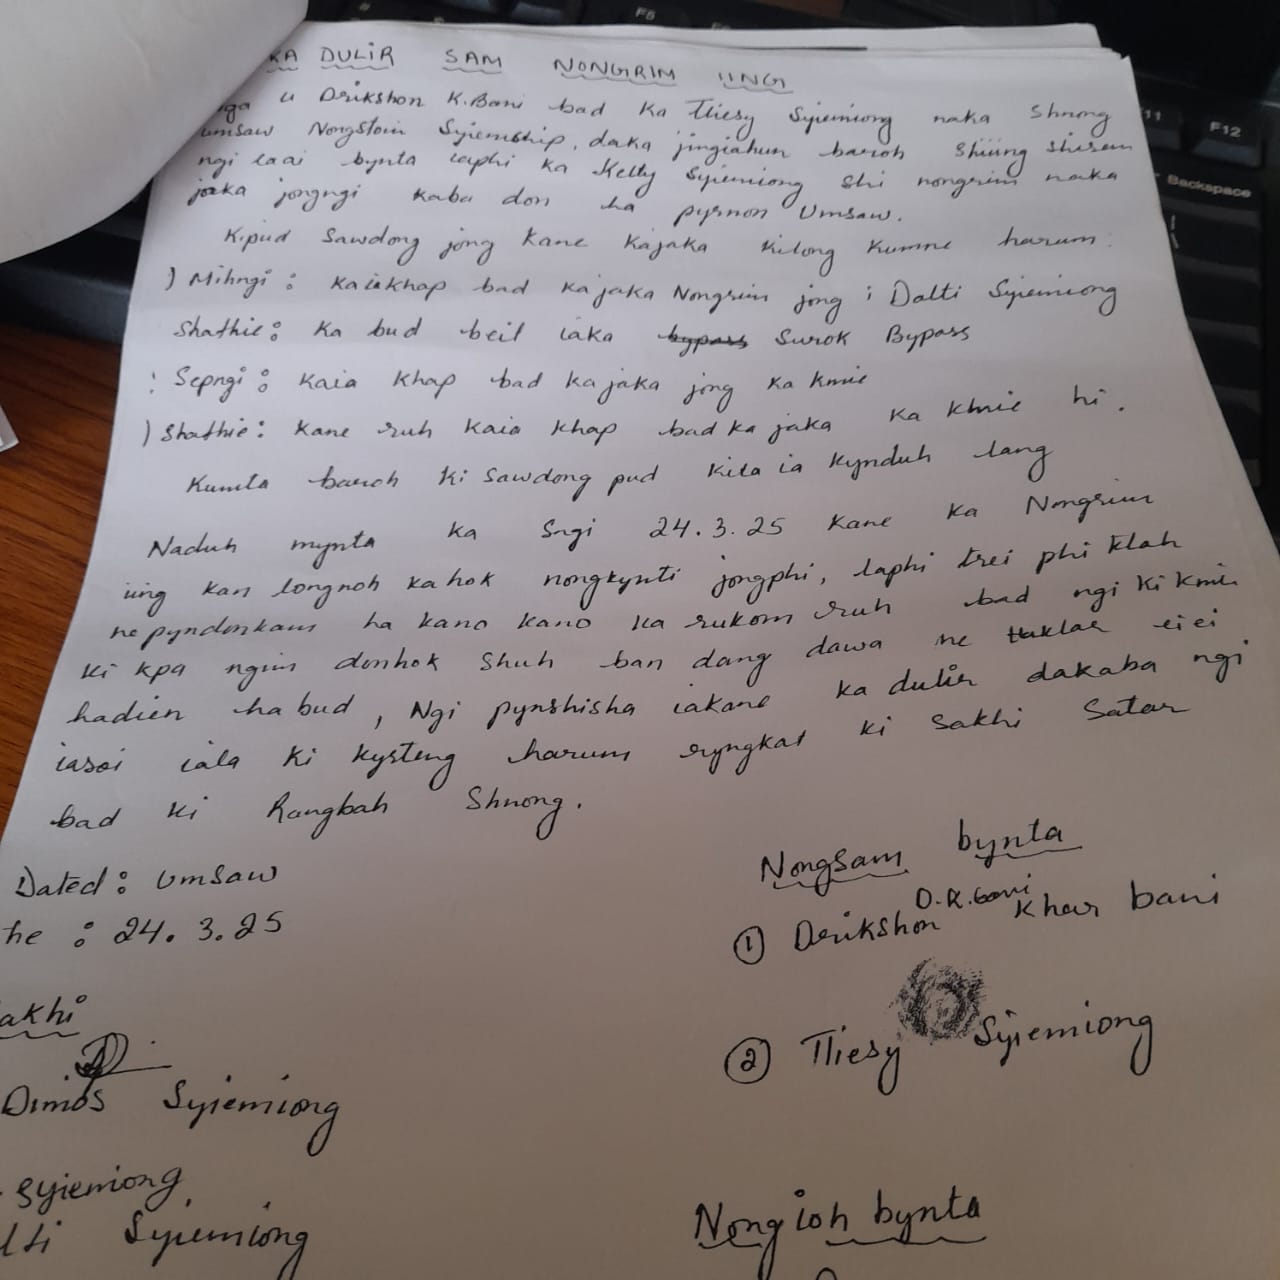 KA DULIR SAM NONGRIM IING
nga u Drikshon K.Bani bad Ka Tliesy Syiemiong naka Shnong
Umsaw Nongstoin Syiemship, daka jingiahun baroh shiiing shisem
ngi la ai bynta iaphi ka Kelly Syiemiong shi nongrim naka
jaka jongngi kaba don ha pyrnon Umsaw.
Kipud Sawdong jong kane kajaka kilong kumne harum:
) Mihngi : kaiakhap bad kajaka Nongrim jong i Dalti Syiemiong
Shathie: Ka bud beit iaka bypass Surok Bypass
: Sepngi : kaia khap bad kajaka jong ka kmie
) Shathie: kane ruh kaia khap bad ka jaka ka kmie hi.
Kumta baroh ki Sawdong pud kila ia kynduh lang
Naduh mynta ka Sngi 24.3.25 kane ka Nongrim
iing kan longnoh kahok nongkynti jongphi, laphi trei phi klah
ne pyndonkam ha kano kano ka rukom ruh bad ngi ki kmie
ki kpa ngim donhok shuh ban dang dawa ne taklar eiei
hadien habud, Ngi pynshisha iakane ka dulir dakaba ngi
iasoi iala ki kyrteng harum ryngkat ki sakhi satar
bad ki Rangbah Shnong.
Dated : Umsaw
the : 24.3.25
Nongsam bynta
D.K.bani
① Drikshon Khar bani
② Tliesy Syiemiong
akhi
Dimos Syiemiong
Syiemiong
lti Syiemiong
Nongioh bynta
F8
11
F12
Backspace